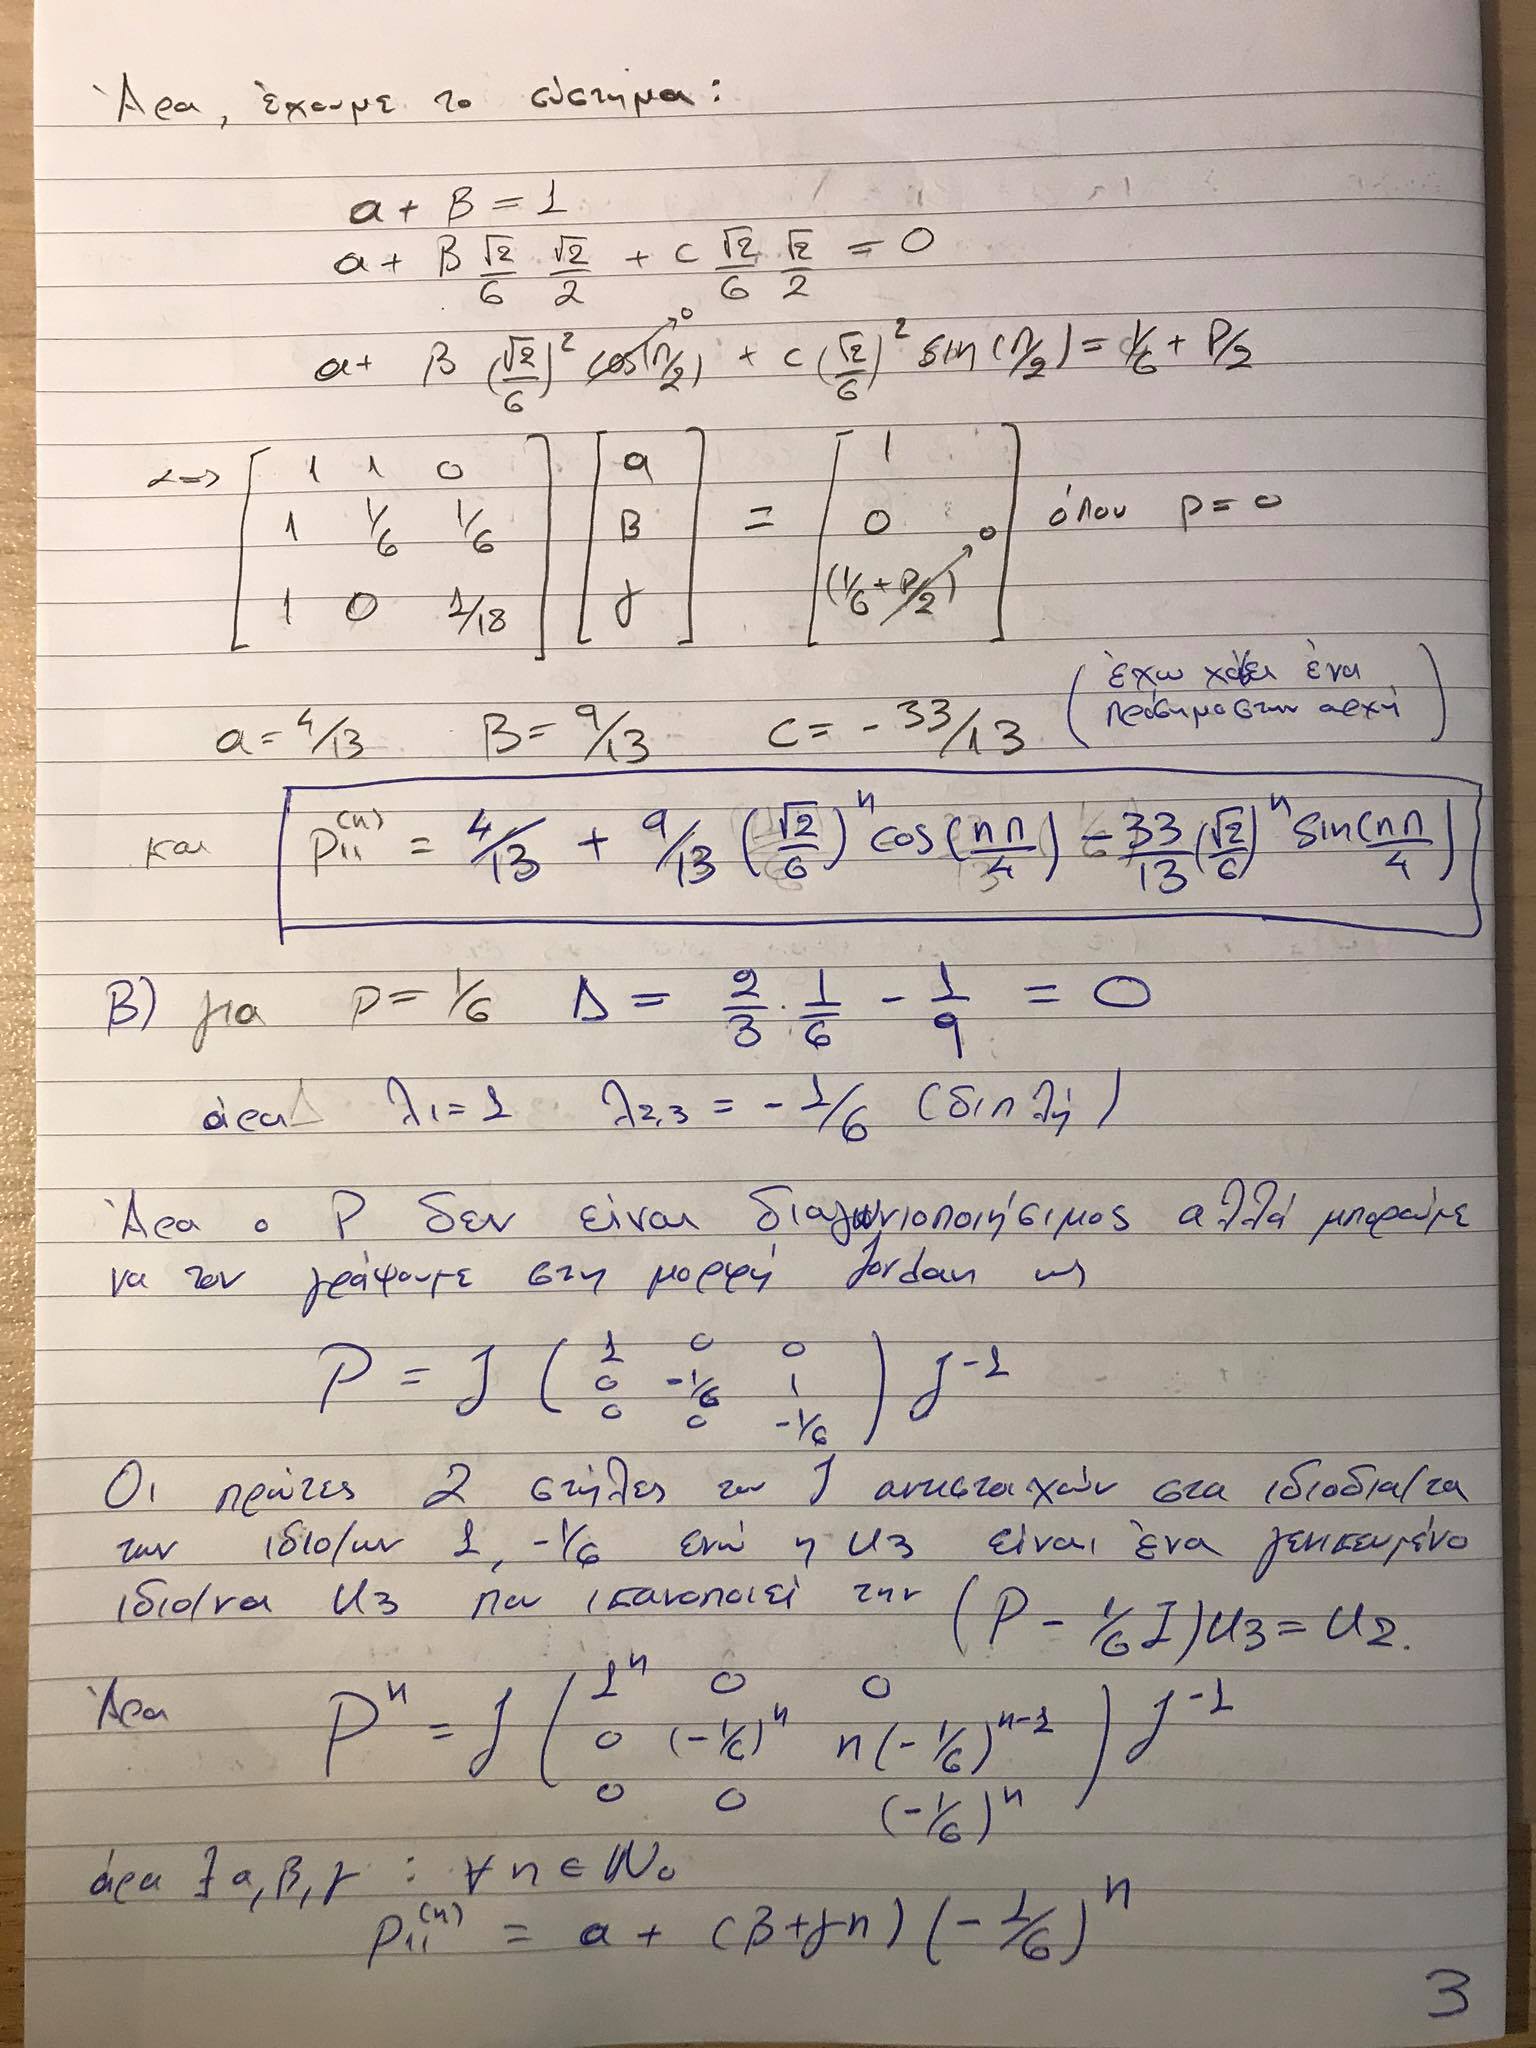 Άρα, έχουμε το σύστημα:
a + β = 1
a + β √2/6 √2/2 + c √2/6 √2/2 = 0
a + β (√2/6)² cos(π/2) → 0 + c (√2/6)² sin(π/2) = 1/6 + P/2
<=> [1 1 0; 1 1/6 1/6; 1 0 1/18] [a; β; γ] = [1; 0; (1/6 + P/2 → 0)] όπου p = 0
(έχω χάσει ένα
πρόσημο στην αρχή)
a = 4/13 β = 9/13 c = -33/13
και P₁₁⁽ⁿ⁾ = 4/13 + 9/13 (√2/6)ⁿ cos(nπ/4) - 33/13 (√2/6)ⁿ sin(nπ/4)
β) για p = 1/6 Δ = 2/3 · 1/6 - 1/9 = 0
άρα λ₁ = 1 λ₂,₃ = -1/6 (διπλή)
Άρα ο P δεν είναι διαγωνιοποιήσιμος αλλά μπορούμε
να τον γράψουμε στη μορφή Jordan ως
P = J (1 0 0; 0 -1/6 1; 0 0 -1/6) J⁻¹
Οι πρώτες 2 στήλες του J αντιστοιχούν στα ιδιοδια/τα
των ιδιο/ων 1, -1/6 ενώ η u₃ είναι ένα γενικευμένο
ιδιο/να u₃ που ικανοποιεί την (P - 1/6 I)u₃ = u₂.
Άρα Pⁿ = J (1ⁿ 0 0; 0 (-1/6)ⁿ n(-1/6)ⁿ⁻¹; 0 0 (-1/6)ⁿ) J⁻¹
άρα ∃ a, β, γ : ∀ n ∈ ℕ₀
P₁₁⁽ⁿ⁾ = a + (β + γn)(-1/6)ⁿ
3